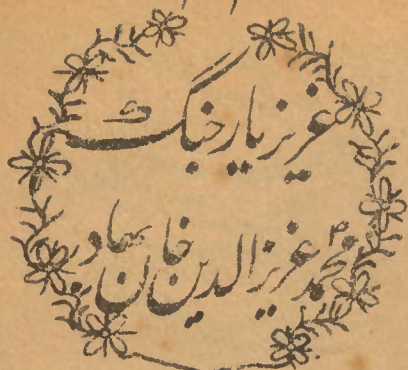 عزیز یار جنگ
محمد عزیز الدین خان بہادر